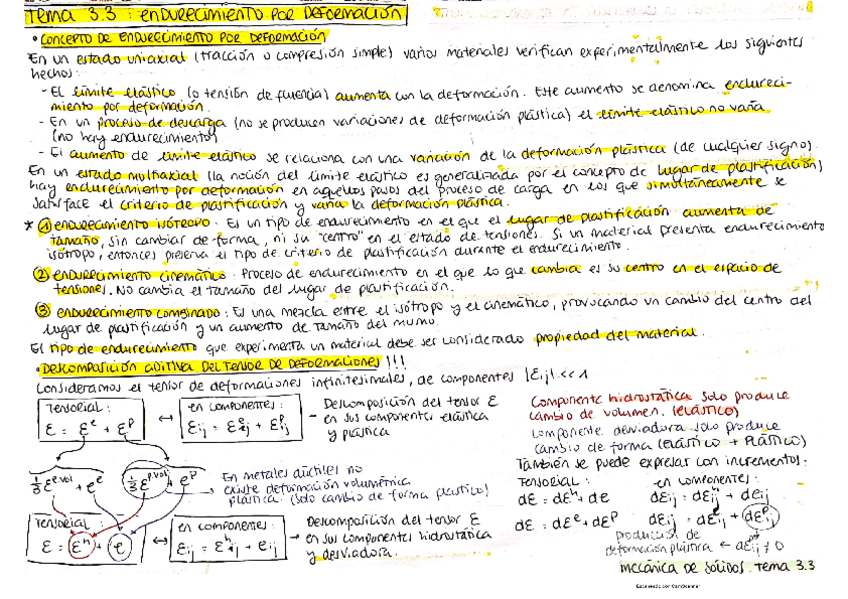 Tema 3.3 : ENDURECIMIENTO POR DEFORMACIÓN
• CONCEPTO DE ENDURECIMIENTO POR DEFORMACIÓN
En un estado uniaxial (tracción o compresión simple) varios materiales verifican experimentalmente los siguientes
hechos:
- El límite elástico (o tensión de fluencia) aumenta con la deformación. Este aumento se denomina endureci-
miento por deformación.
- En un proceso de descarga (no se producen variaciones de deformación plástica) el límite elástico no varía
(no hay endurecimiento)
- El aumento de límite elástico se relaciona con una variación de la deformación plástica (de cualquier signo).
En un estado multiaxial (la noción del límite elástico es generalizada por el concepto de lugar de plastificación)
hay endurecimiento por deformación en aquellos pasos del proceso de carga en los que simultáneamente se
satisface el criterio de plastificación y varía la deformación plástica.
* ① endurecimiento isótropo. Es un tipo de endurecimiento en el que el lugar de plastificación aumenta de
tamaño, sin cambiar de forma, ni su "centro" en el estado de tensiones. Si un material presenta endurecimiento
isótropo, entonces preserva el tipo de criterio de plastificación durante el endurecimiento.
② endurecimiento cinemático: Proceso de endurecimiento en el que lo que cambia es su centro en el espacio de
tensiones. No cambia el tamaño del lugar de plastificación.
③ endurecimiento combinado: Es una mezcla entre el isótropo y el cinemático, provocando un cambio del centro del
lugar de plastificación y un aumento de tamaño del mismo.
El tipo de endurecimiento que experimenta un material debe ser considerado propiedad del material.
• DESCOMPOSICIÓN ADITIVA DEL TENSOR DE DEFORMACIONES !!!
Consideramos el tensor de deformaciones infinitesimales, de componentes |εij| << 1
TENSORIAL:
ε = εᵉ + εᵖ
↔
en componentes:
εij = εᵉij + εᵖij
- Descomposición del tensor ε
en sus componentes elástica
y plástica
Componente hidrostática solo produce
cambio de volumen. (ELÁSTICO)
Componente desviadora solo produce
cambio de forma (ELÁSTICO + PLÁSTICO)
También se puede expresar con incrementos:
Tensorial:
dε = dεʰ + de
dε = dεᵉ + dεᵖ
en componentes:
dεij = dεʰij + deij
dεij = dεᵉij + dεᵖij
producción de
deformación plástica ← dεᵖij ≠ 0
1/3 εᵉ·ᵛᵒˡ + eᵉ
1/3 εᵖ·ᵛᵒˡ + eᵖ
En metales dúctiles no
existe deformación volumétrica
plástica. (Solo cambio de forma plástico)
Tensorial:
ε = εʰ + e
↔
en componentes:
εij = εʰij + eij
→ Descomposición del tensor ε
en sus componentes hidrostática
y desviadora.
mecánica de sólidos. Tema 3.3
Escaneado con CamScanner